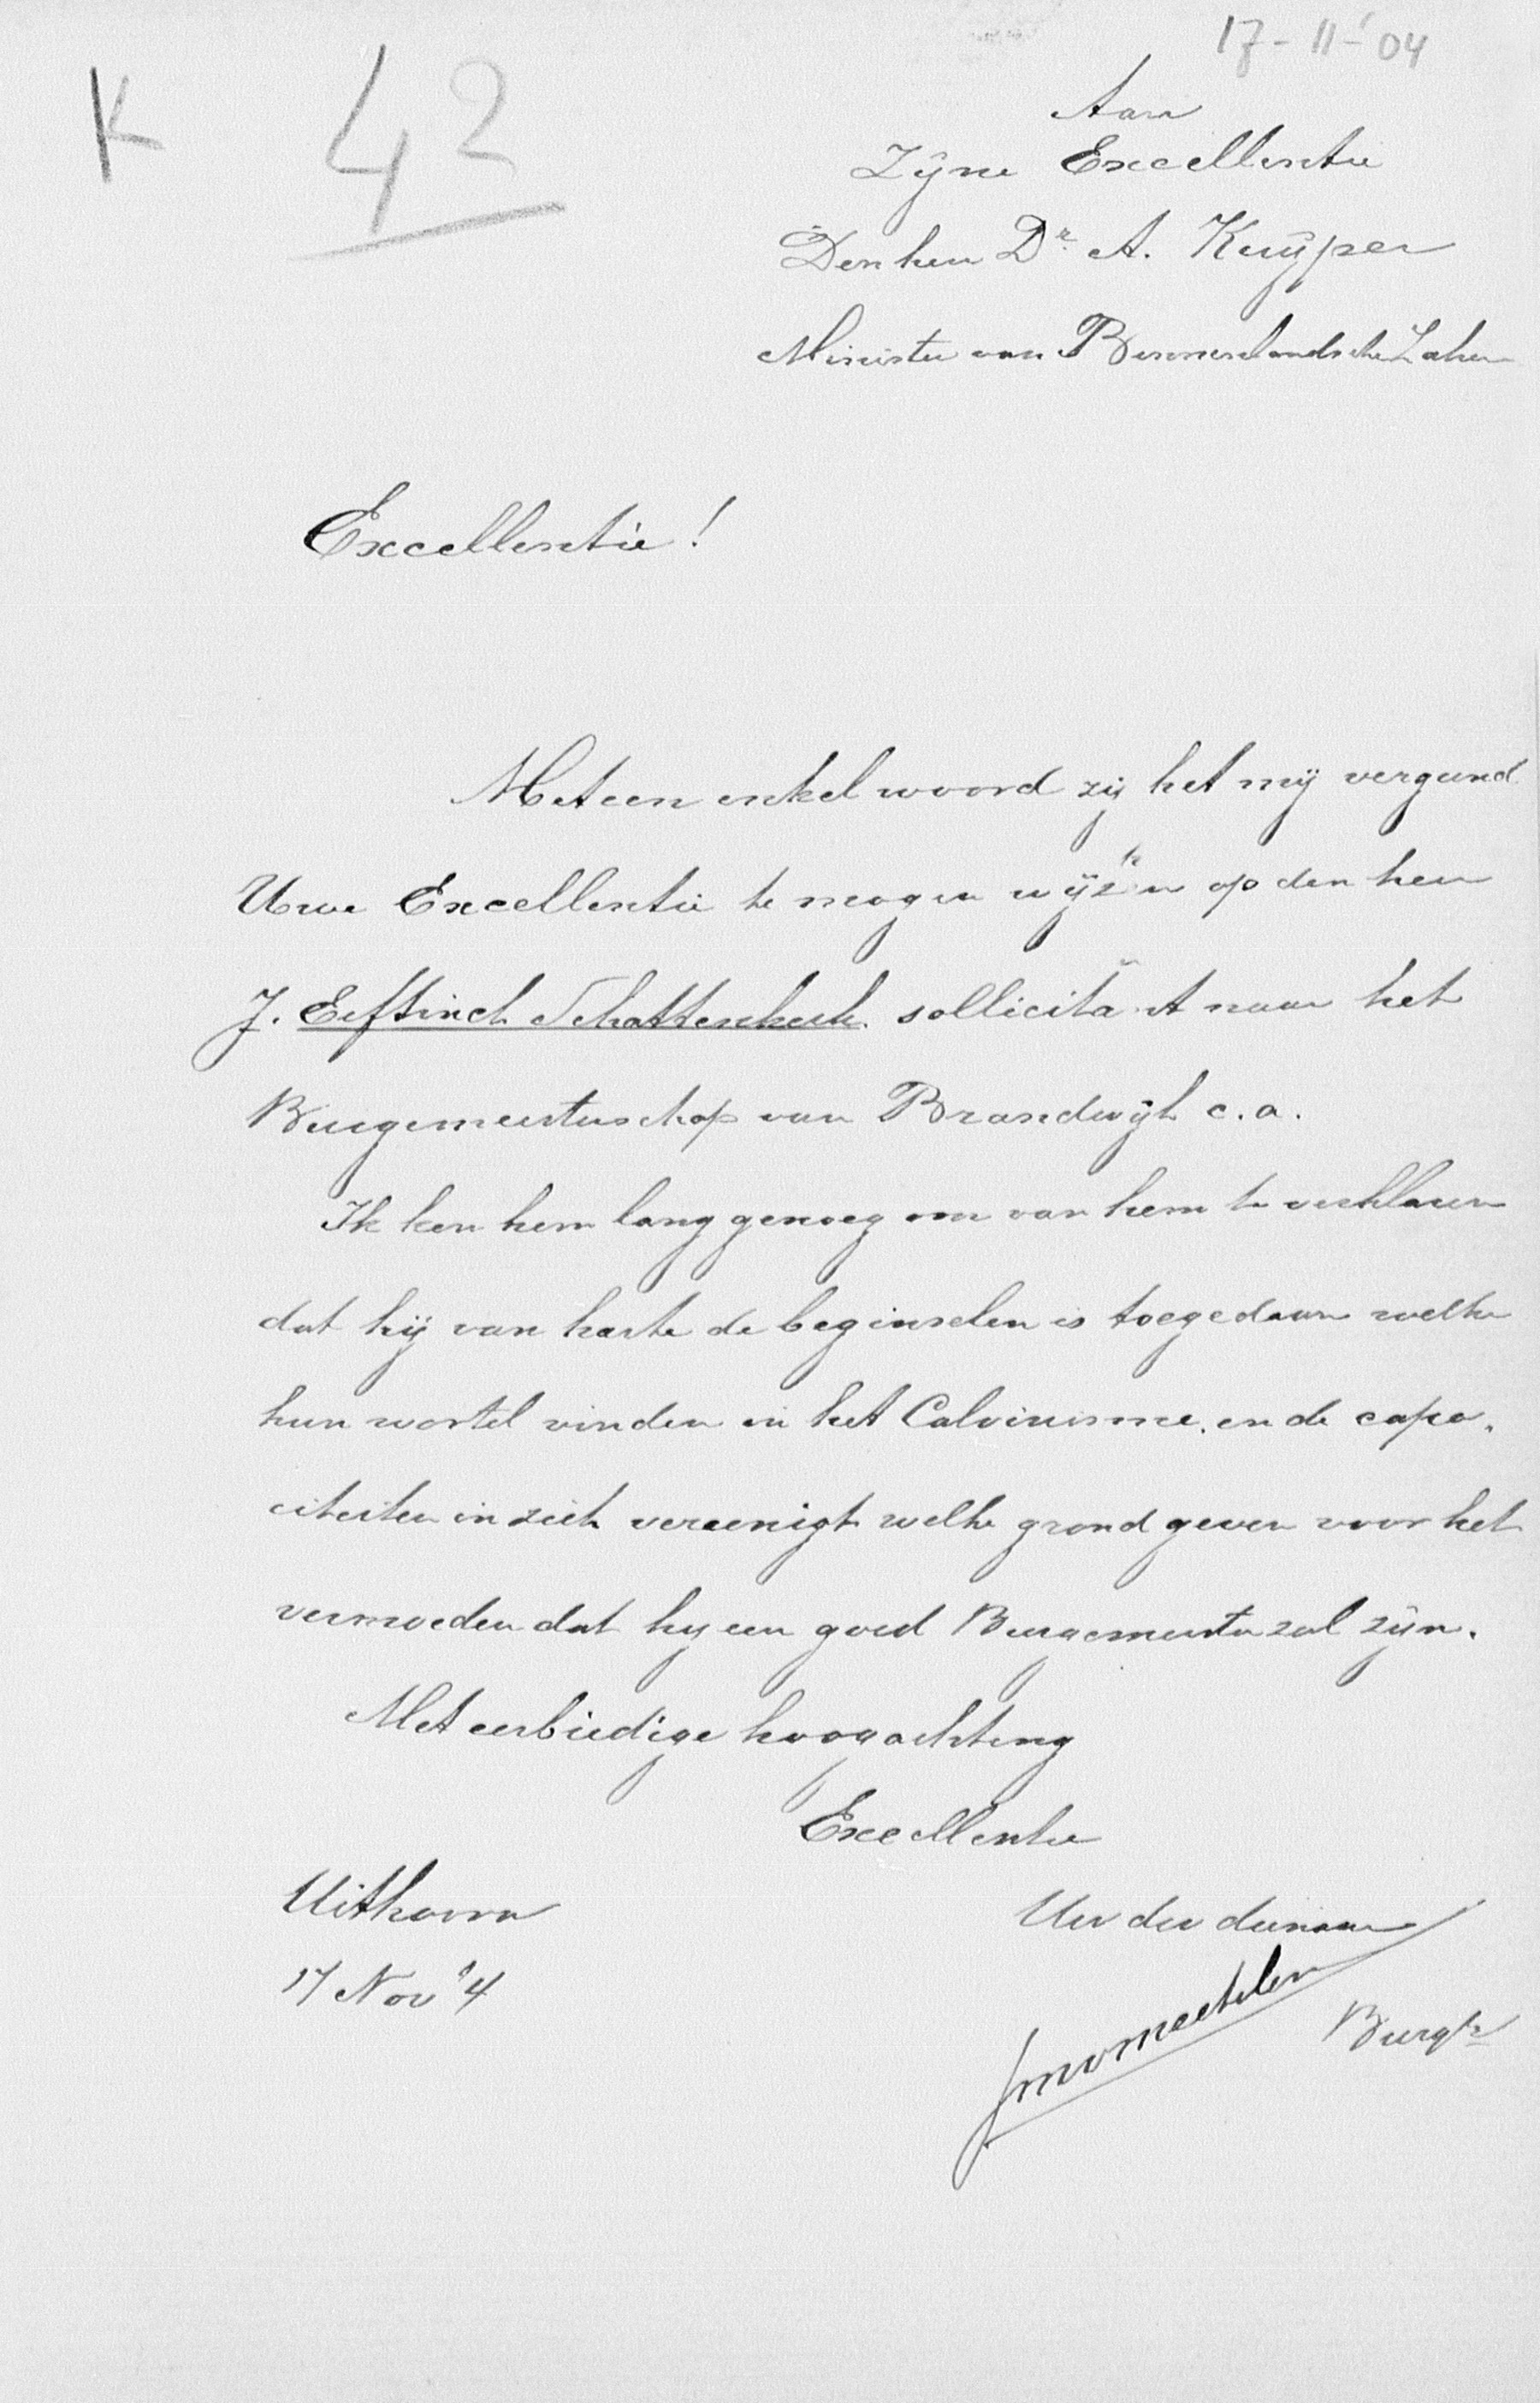 17-11-'04
K 42
Aan
Zijne Excellentie
Den heer Dr. A. Kuijper
Minister van Binnenlandsche Zaken
Excellentie!
Met een enkel woord zij het mij vergund
Uwe Excellentie te mogen wijzen op den heer
J. Eeftinck Schattenkerk sollicitant naar het
Burgemeesterschap van Brandwijk c.a.
Ik ken hem lang genoeg om van hem te verklaren
dat hij van harte de beginselen is toegedaan welke
hun wortel vinden in het Calvinisme, en de capa-
citeiten in zich vereenigt welke grond geven voor het
vermoeden dat hij een goed Burgemeester zal zijn.
Met eerbiedige hoogachting
Excellentie
Uithoorn
Uw dw dienaar
17 Nov '4
Burgr